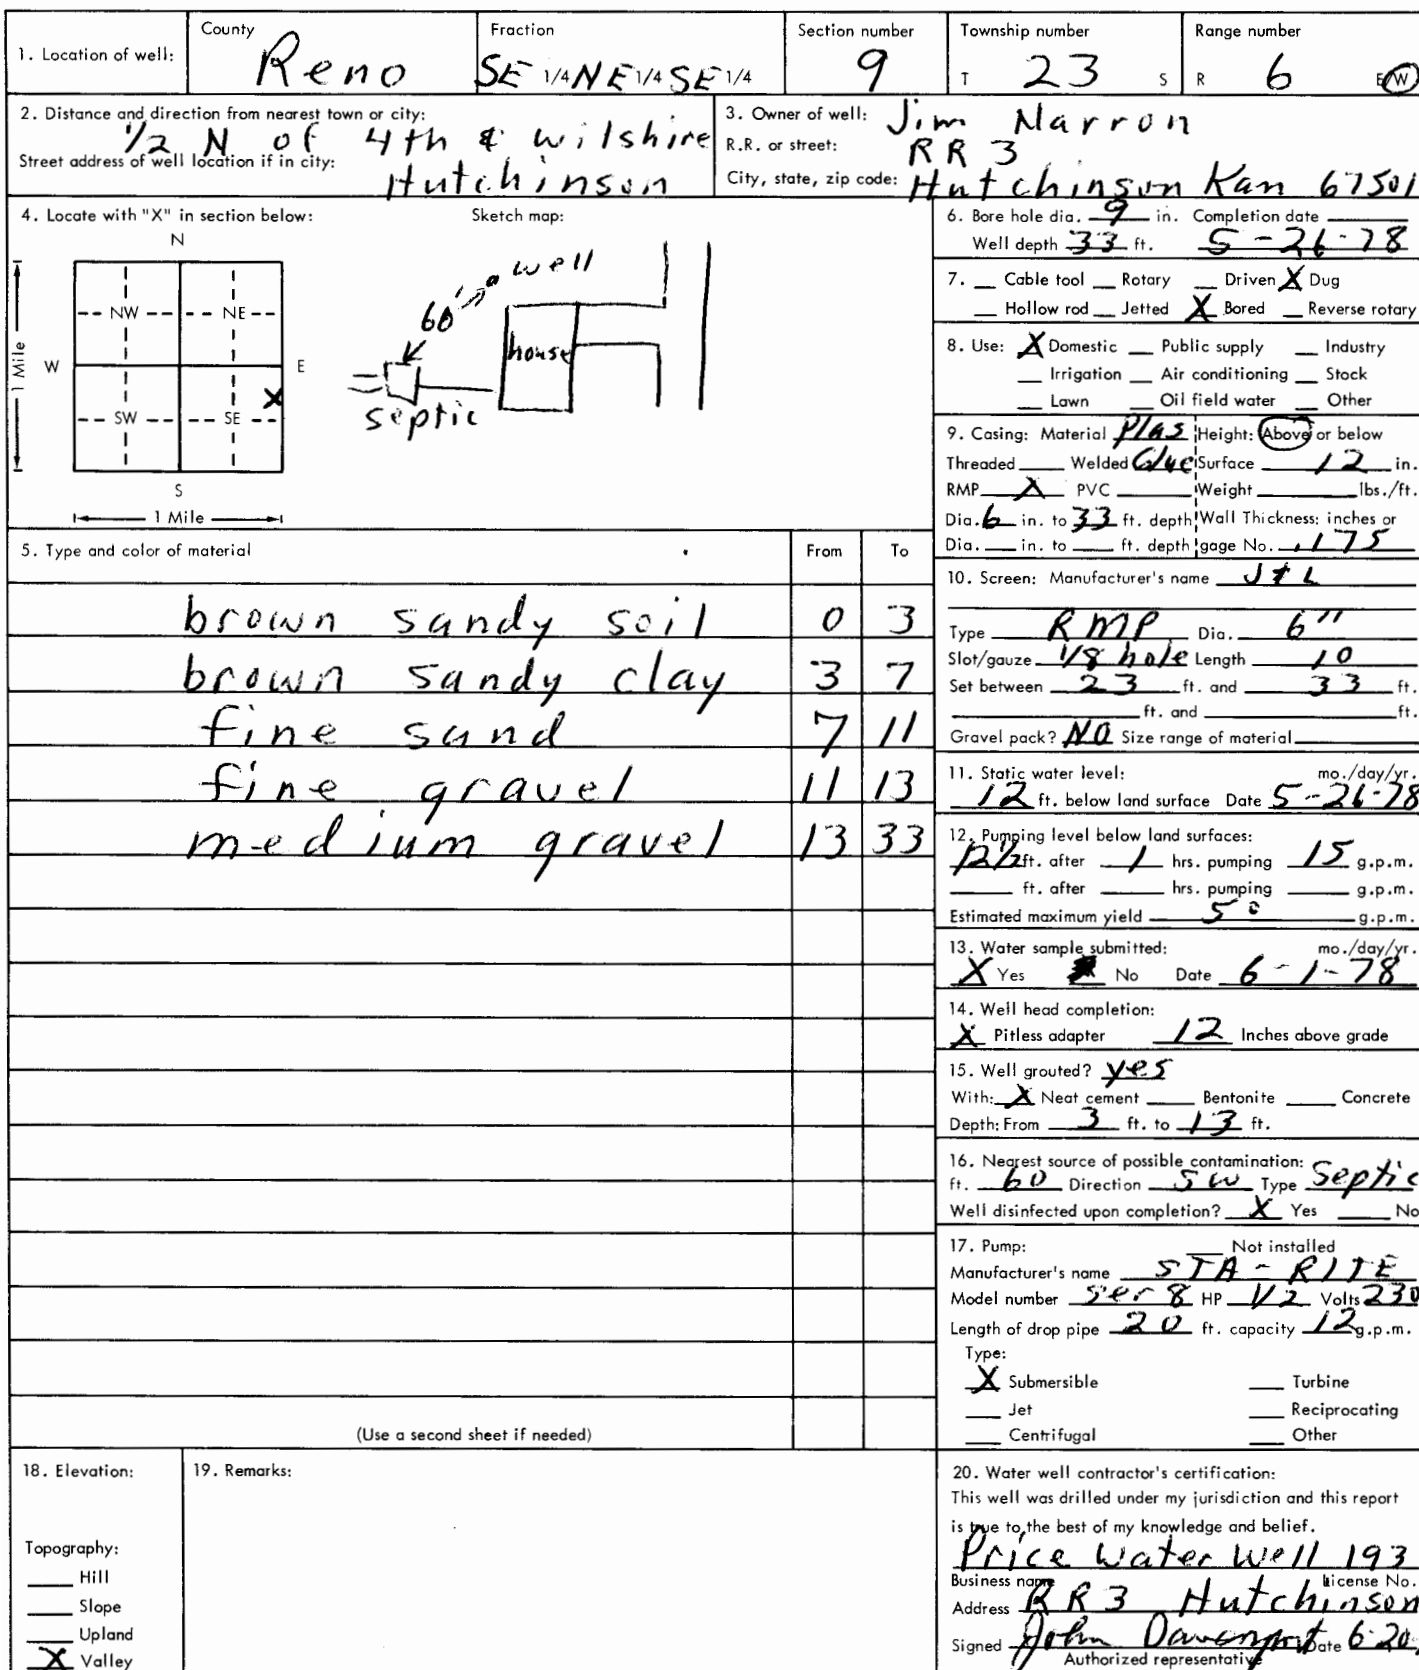 1. Location of well: County Reno Fraction SE 1/4 NE 1/4 SE 1/4 Section number 9 Township number T 23 S Range number R 6 E W
2. Distance and direction from nearest town or city: 1/2 N of 4th & Wilshire
Street address of well location if in city: Hutchinson
3. Owner of well: Jim Narron
R.R. or street: RR 3
City, state, zip code: Hutchinson Kan 67501
4. Locate with "X" in section below:
N
NW NE
W E
X
SW SE
S
1 Mile
1 Mile
Sketch map:
well
60'
house
septic
5. Type and color of material From To
brown sandy soil 0 3
brown sandy clay 3 7
fine sand 7 11
fine gravel 11 13
medium gravel 13 33
(Use a second sheet if needed)
6. Bore hole dia. 9 in. Completion date
Well depth 33 ft. 5-26-78
7. __ Cable tool __ Rotary __ Driven X Dug
__ Hollow rod __ Jetted X Bored __ Reverse rotary
8. Use: X Domestic __ Public supply __ Industry
__ Irrigation __ Air conditioning __ Stock
__ Lawn __ Oil field water __ Other
9. Casing: Material Plas Height: Above or below
Threaded __ Welded Glue Surface 12 in.
RMP X PVC __ Weight __ lbs./ft.
Dia. 6 in. to 33 ft. depth Wall Thickness: inches or
Dia. __ in. to __ ft. depth gage No. .175
10. Screen: Manufacturer's name J & L
Type RMP Dia. 6"
Slot/gauze 1/8 hole Length 10
Set between 23 ft. and 33 ft.
__ ft. and __ ft.
Gravel pack? NO Size range of material __
11. Static water level: mo./day/yr.
12 ft. below land surface Date 5-26-78
12. Pumping level below land surfaces:
12 1/2 ft. after 1 hrs. pumping 15 g.p.m.
__ ft. after __ hrs. pumping __ g.p.m.
Estimated maximum yield 50 g.p.m.
13. Water sample submitted: mo./day/yr.
X Yes __ No Date 6-1-78
14. Well head completion:
X Pitless adapter 12 Inches above grade
15. Well grouted? yes
With: X Neat cement __ Bentonite __ Concrete
Depth: From 3 ft. to 13 ft.
16. Nearest source of possible contamination:
ft. 60 Direction SW Type Septic
Well disinfected upon completion? X Yes __ No
17. Pump: __ Not installed
Manufacturer's name STA-RITE
Model number ser 8 HP 1/2 Volts 230
Length of drop pipe 20 ft. capacity 12 g.p.m.
Type:
X Submersible __ Turbine
__ Jet __ Reciprocating
__ Centrifugal __ Other
18. Elevation:
Topography:
__ Hill
__ Slope
__ Upland
X Valley
19. Remarks:
20. Water well contractor's certification:
This well was drilled under my jurisdiction and this report
is true to the best of my knowledge and belief.
Price Water Well 193
Business name License No.
Address RR3 Hutchinson
Signed John Davenport Date 6-20
Authorized representative